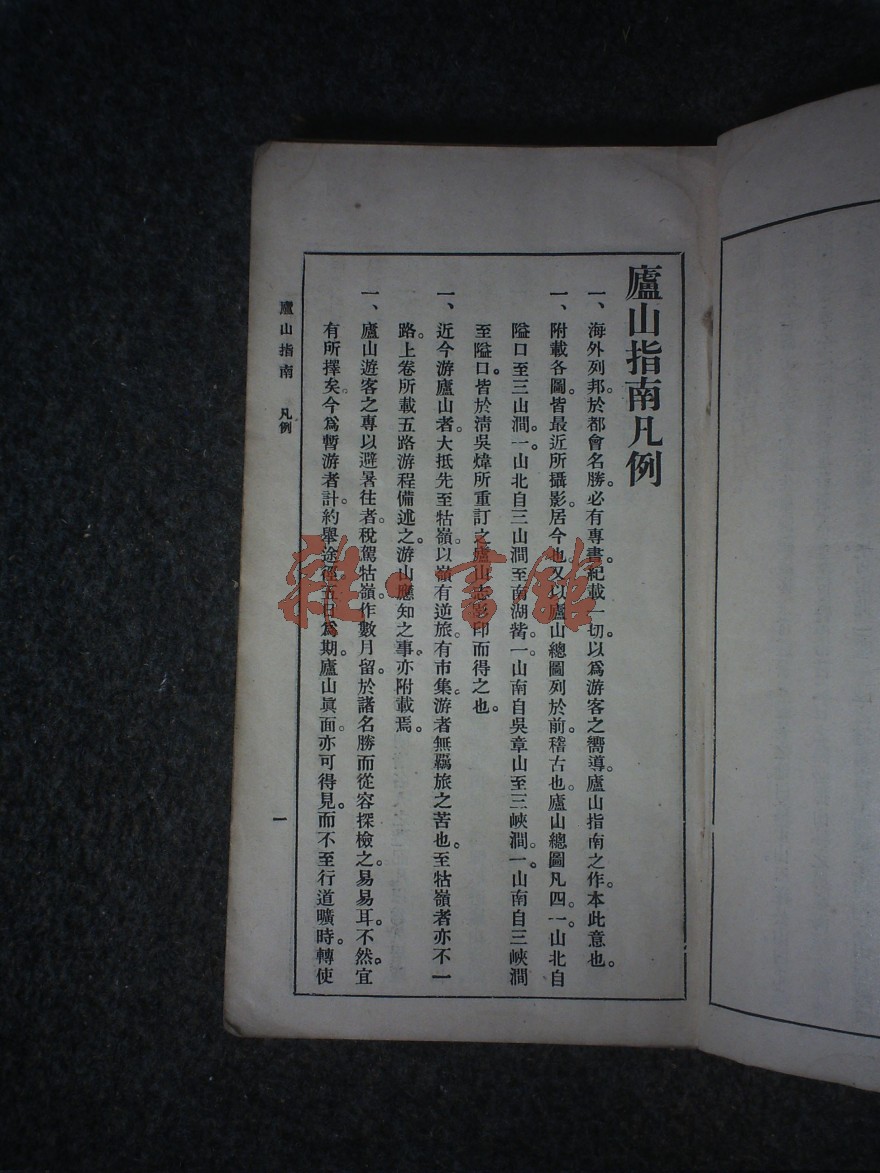 廬山指南凡例
一、海外列邦。於都會名勝。必有專書。紀載一切。以爲游客之嚮導。廬山指南之作。本此意也。
一、附載各圖。皆最近所攝影。居今也。又以廬山總圖列於前。稽古也。廬山總圖凡四。一山北自
隘口至三山澗。一山北自三山澗至南湖觜。一山南自吳章山至三峽澗。一山南自三峽澗
至隘口。皆於淸吳煒所重訂之廬山志影印而得之也。
一、近今游廬山者。大抵先至牯嶺。以嶺有逆旅。有市集。游者無羈旅之苦也。至牯嶺者亦不一
路。上卷所載五路游程備述之。游山應知之事。亦附載焉。
一、廬山遊客之專以避暑往者。稅駕牯嶺。作數月留。於諸名勝而從容探檢之。易易耳。不然。宜
有所擇矣。今爲暫游者計。約舉途徑。五日爲期。廬山眞面。亦可得見。而不至行道曠時。轉使
廬山指南 凡例
一
雜·書館